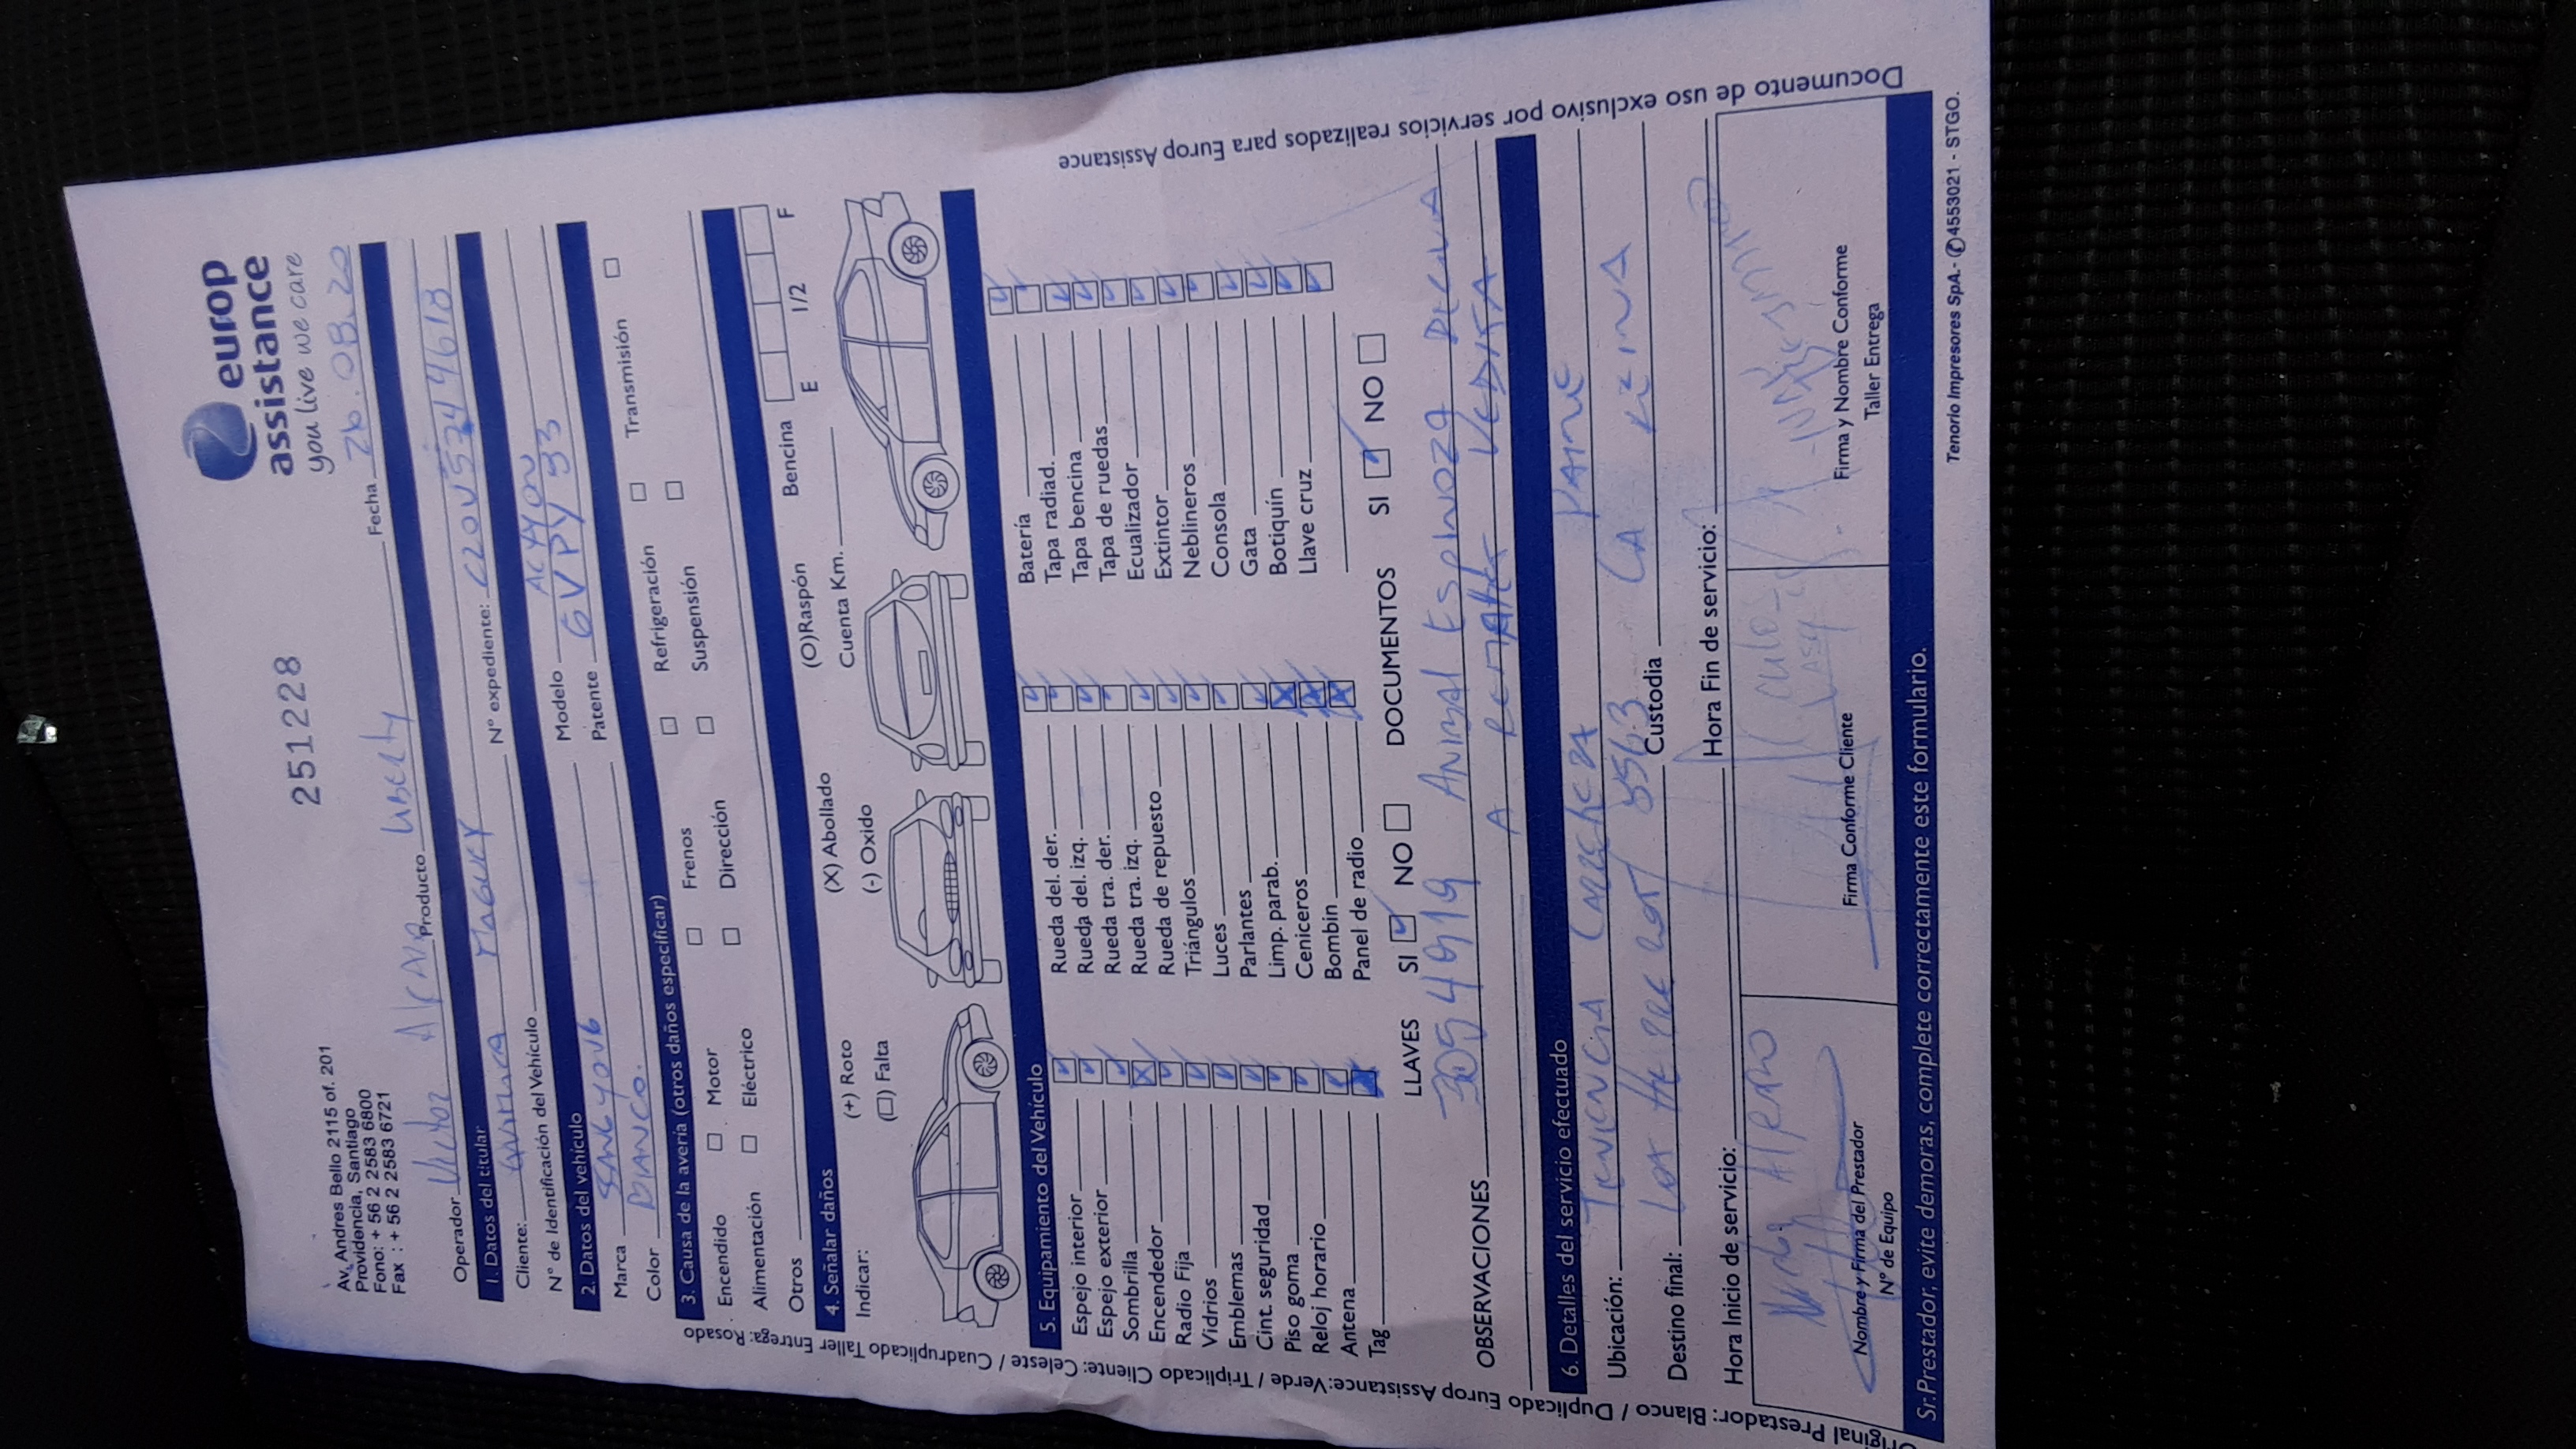 251228
europ
assistance
you live we care
Av. Andres Bello 2115 of. 201
Providencia, Santiago
Fono: + 56 2 2583 6800
Fax : + 56 2 2583 6721
Fecha 26.08.20
Operador Producto Liberty
1. Datos del titular
Cliente: Nº expediente:
Nº de Identificación del Vehículo
2. Datos del vehículo
Marca SANGYONG Modelo ACTYON
Color BLANCO. Patente GVPY 93
3. Causa de la avería (otros daños especificar)
Encendido Motor Frenos Refrigeración Transmisión
Alimentación Eléctrico Dirección Suspensión
Otros
4. Señalar daños
Indicar: (+) Roto (X) Abollado (O)Raspón Bencina E 1/2 F
(□) Falta (-) Oxido Cuenta Km.
5. Equipamiento del Vehículo
Espejo interior Rueda del. der. Batería
Espejo exterior Rueda del. izq. Tapa radiad.
Sombrilla Rueda tra. der. Tapa bencina
Encendedor Rueda tra. izq. Tapa de ruedas
Radio Fija Rueda de repuesto Ecualizador
Vidrios Triángulos Extintor
Emblemas Luces Neblineros
Cint. seguridad Parlantes Consola
Piso goma Limp. parab. Gata
Reloj horario Ceniceros Botiquín
Antena Bombin Llave cruz
Tag Panel de radio
LLAVES SI NO DOCUMENTOS SI NO
OBSERVACIONES 3054919 ANIBAL ESPINOZA
A REMATE
6. Detalles del servicio efectuado
Ubicación: TENENCIA PAINE
Destino final: Custodia
Hora Inicio de servicio: Hora Fin de servicio:
Nombre y Firma del Prestador
Nº de Equipo
Firma Conforme Cliente
Firma y Nombre Conforme
Taller Entrega
Sr. Prestador, evite demoras, complete correctamente este formulario.
Tenorio Impresores SpA. - ✆4553021 - STGO.
Original Prestador: Blanco / Duplicado Europ Assistance: Verde / Triplicado Cliente: Celeste / Cuadruplicado Taller Entrega: Rosado
Documento de uso exclusivo por servicios realizados para Europ Assistance